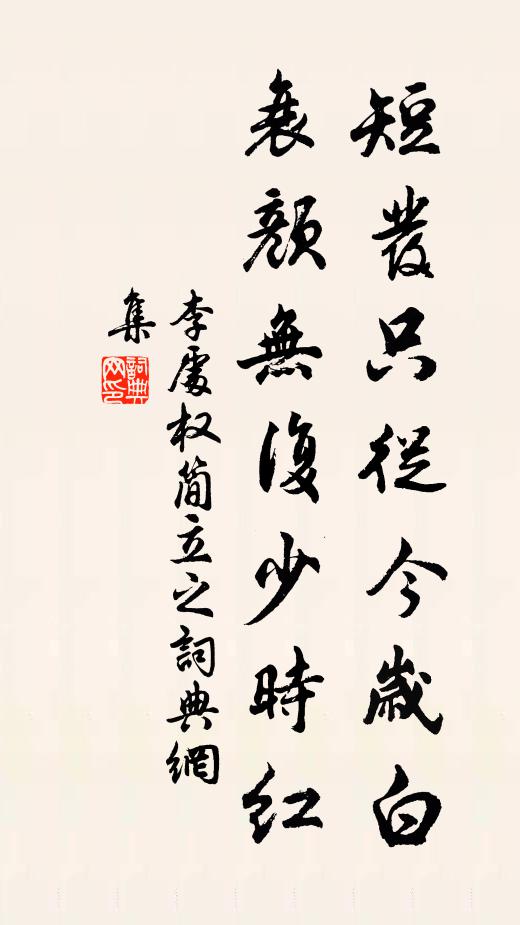 短發只從今歲白
衰顏無復少時紅
李處权簡立之詞典網
集
詞典
网印